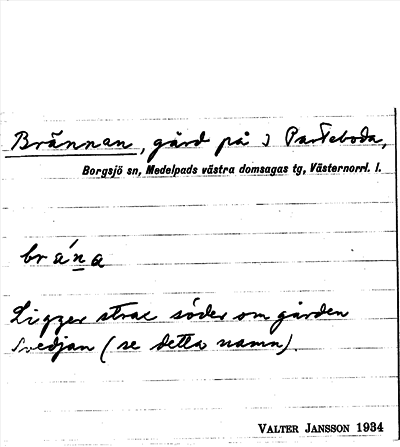 Brännan, gård på 3 Parteboda,
Borgsjö sn, Medelpads västra domsagas tg, Västernorrl. l.
brä́na
Ligger strax söder om gården
Svedjan (se detta namn).
VALTER JANSSON 1934